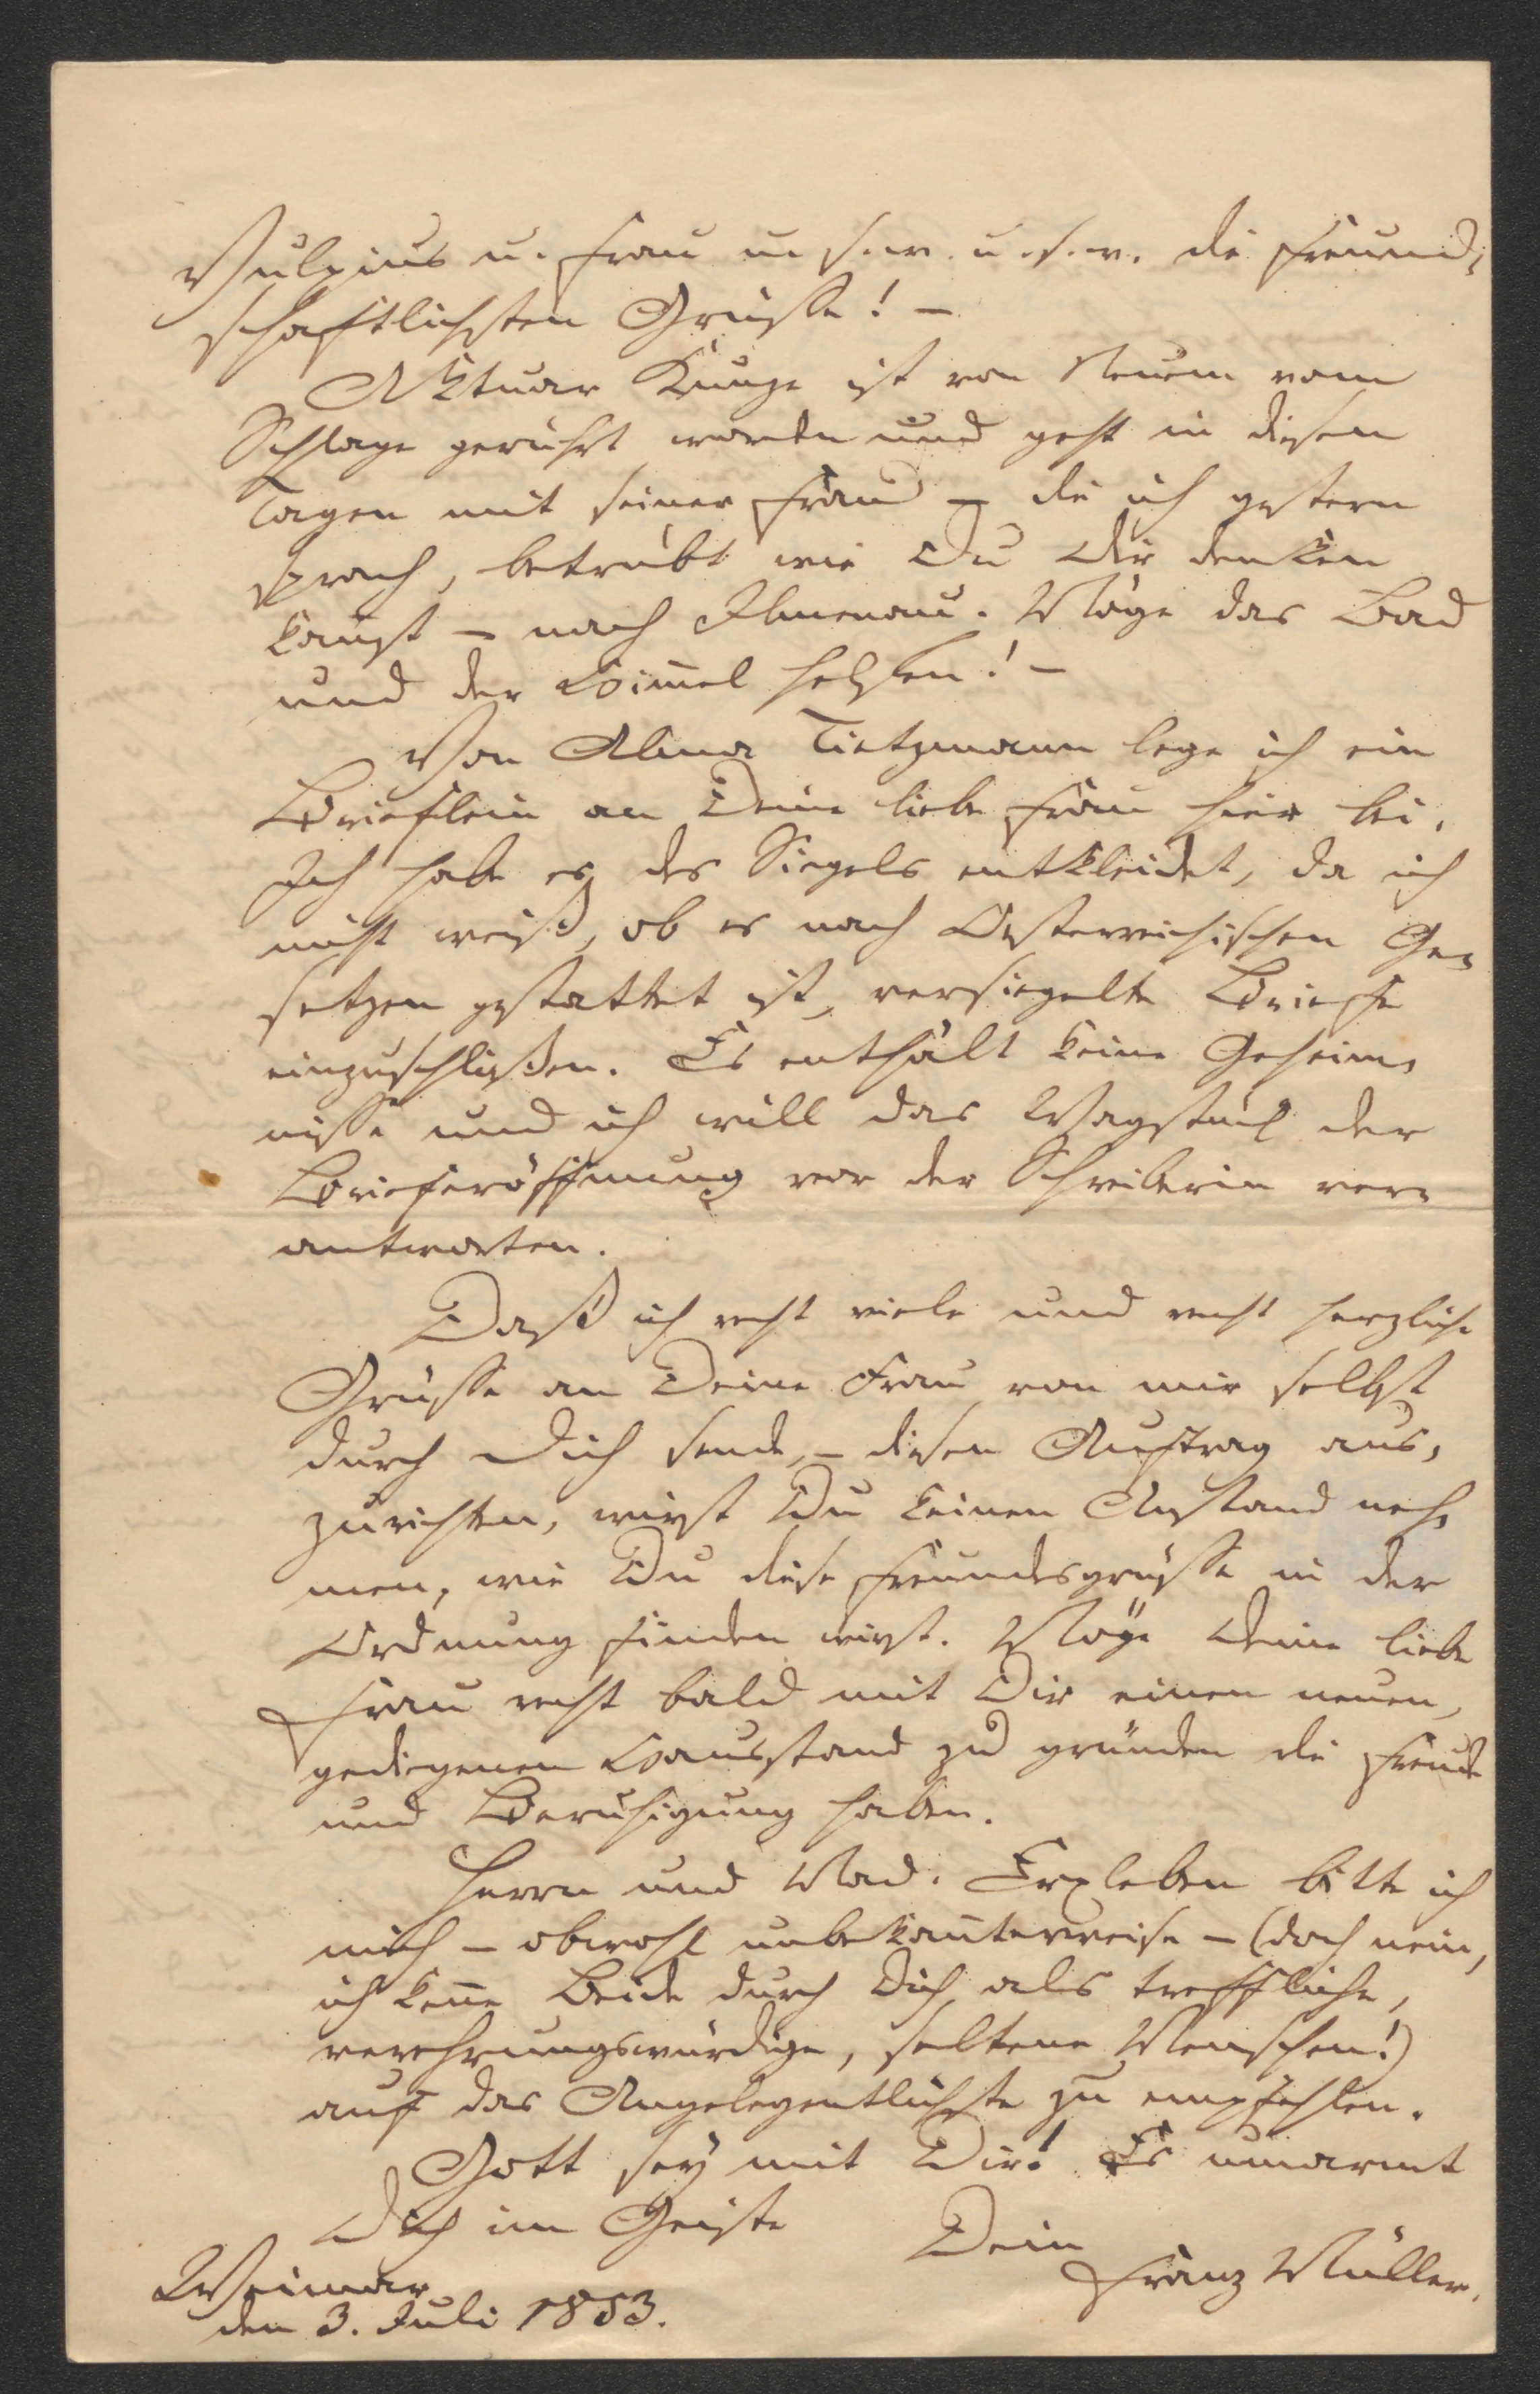 Vulpius u. Frau u. s. w. u. s. w. die freund-
schaftlichsten Grüsse! –
Aktuar Kunze ist von Neuem vom
Schlage gerührt worden und geht in diesen
Tagen mit seiner Frau – die ich gestern
sprach, betrübt wie Du Dir denken
kanst – nach Ilmenau. Möge das Bad
und der Him̄el helfen! –
Von Alma Tietzmann lege ich ein
Brieflein an Deine liebe Frau hier bei.
Ich habe es des Siegels entkleidet, da ich
nicht weiß, ob es nach Oesterreichischen Ge-
setzen gestattet ist, versiegelte Briefe
einzuschließen. Es enthält keine Geheim-
nisse und ich will das Wagstück der
Brieferöffnung vor der Schreiberin ver-
antworten.
Daß ich recht viele und recht herzliche
Grüsse an Deine Frau von mir selbst
durch Dich sende, – diesen Auftrag aus-
zurichten, wirst Du keinen Anstand neh-
men, wie Du diese Freundesgrüsse in der
Ordnung finden wirst. Möge Deine liebe
Frau recht bald mit Dir einen neuen,
gediegenen Hausstand zu gründen die Freude
und Beruhigung haben.
Herrn und Mad. Erxleben bitte ich
mich – obwohl unbekan̄terweise – (doch nein,
ich ken̄e Beide durch Dich als treffliche,
verehrungswürdige, seltene Menschen!)
auf das Angelegentlichste zu empfehlen.
Gott sey mit Dir! Es umarmt
Dich im Geiste
Dein
Franz Müller.
Weimar
den 3. Juli 1853.